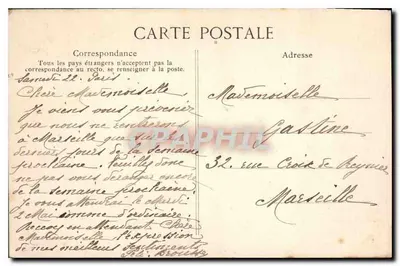 CARTE POSTALE
Correspondance
Tous les pays étrangers n'acceptent pas la
correspondance au recto, se renseigner à la poste.
Samedi 22. Paris.
Chère Mademoiselle
Je viens vous prévenir
que nous ne rentrerons
à Marseille que sur les
derniers jours de la semaine
prochaine. Veuillez donc
ne pas vous déranger encore
de la semaine prochaine.
Je vous attendrai le Mardi
2 Mai comme d'ordinaire.
Recevez en attendant Chère
Mademoiselle l'expression
de mes meilleurs Sentiments
Adresse
Mademoiselle
Gastine
32, rue Croix de Reynier
Marseille